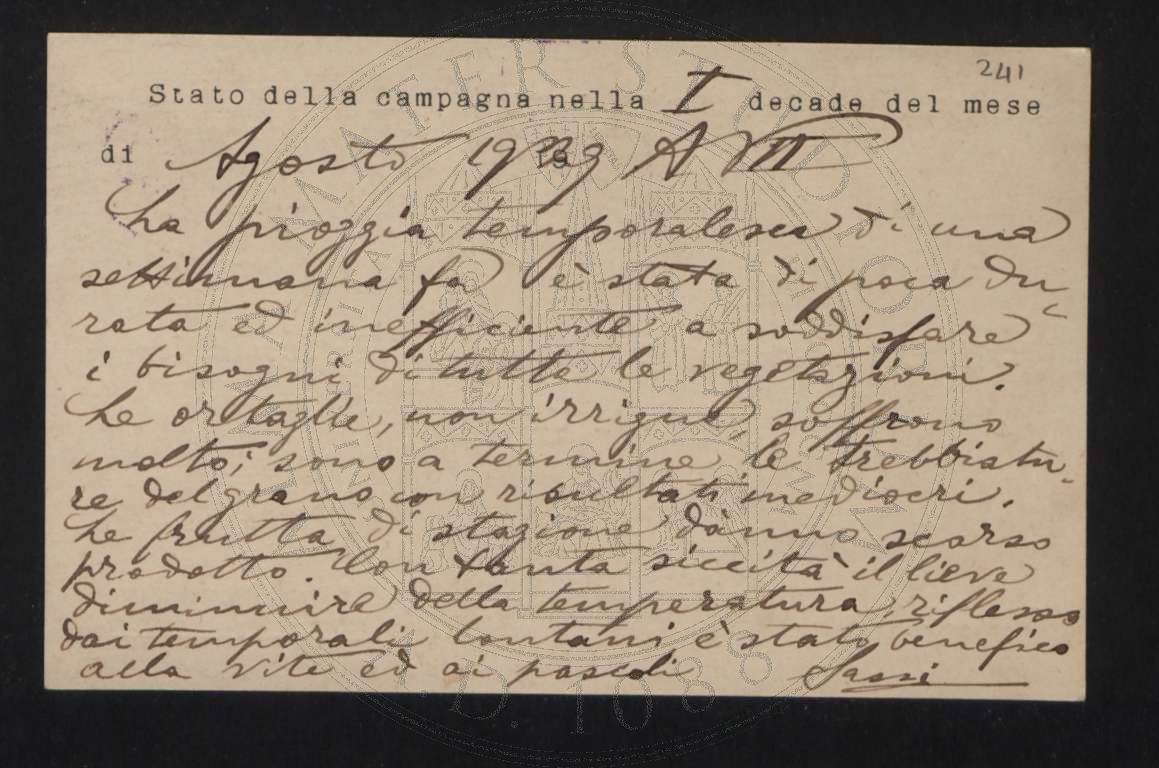 241
Stato della campagna nella I decade del mese
di Agosto 1929 A VII
La pioggia temporalesca di una
settimana fa è stata di poca du-
rata ed inefficiente a soddisfare
i bisogni di tutte le vegetazioni.
Le ortaglie, non irrigue, soffrono
molto; sono a termine le trebbiatu-
re del grano con risultati mediocri.
Le frutta di stagione dànno scarso
prodotto. Con tanta siccità il lieve
diminuire della temperatura, riflesso
dai temporali lontani è stato benefico
alla vite ed ai pascoli Sassi
ALMA MATER STUDIORUM
A.D. 1088